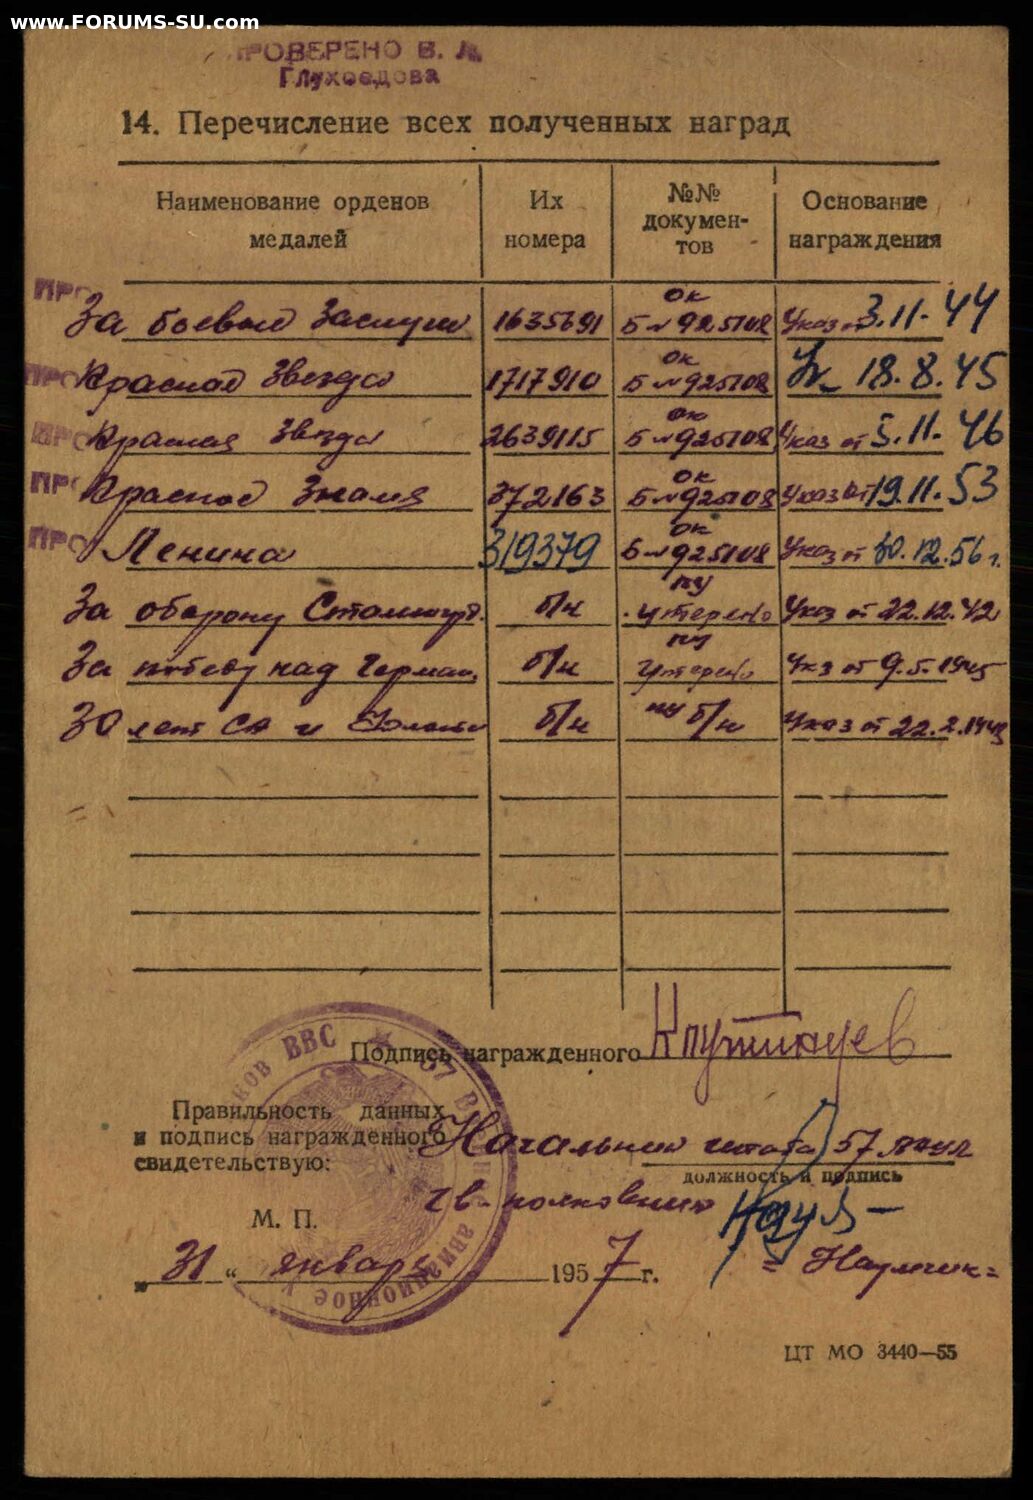 www.FORUMS-SU.com
ПРОВЕРЕНО В. Л.
Глухоедова
14. Перечисление всех полученных наград
Наименование орденов медалей | Их номера | №№ докумен-тов | Основание награждения
За боевые заслуги | 1635691 | ок Б № 925108 | Указ от 3.11.44
Красная Звезда | 1717910 | ок Б № 925108 | Ук 18.8.45
Красная Звезда | 2639115 | ок Б № 925108 | Указ от 5.11.46
Красное Знамя | 372163 | ок Б № 925108 | Указ от 19.11.53
Ленина | 319379 | ок Б № 925108 | Указ от 30.12.56 г.
За оборону Сталинград. | б/н | пу утеряно | Указ от 22.12.42
За победу над Герман. | б/н | пу утеряно | Указ от 9.5.1945
30 лет СА и Флота | б/н | пу б/н | Указ от 22.2.1948
Подпись награжденного
Правильность данных
и подпись награжденного
свидетельствую:
Начальник штаба 57
должность и подпись
гв. полковник
М. П.
"31" января 1957 г.
= Наумчик =
ВВС
57 В
авиационное
ЦТ МО 3440—55